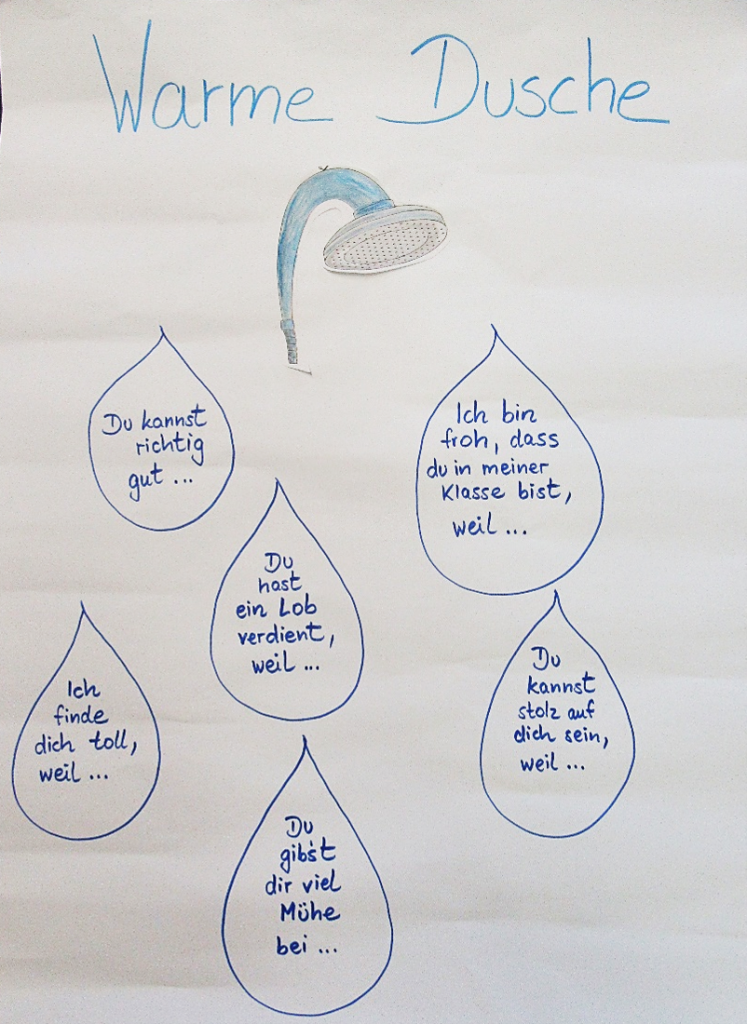 Warme Dusche
Du kannst
richtig
gut ...
Ich bin
froh, dass
du in meiner
Klasse bist,
weil ...
Du
hast
ein Lob
verdient,
weil ...
Ich
finde
dich toll,
weil ...
Du
kannst
stolz auf
dich sein,
weil ...
Du
gibst
dir viel
Mühe
bei ...